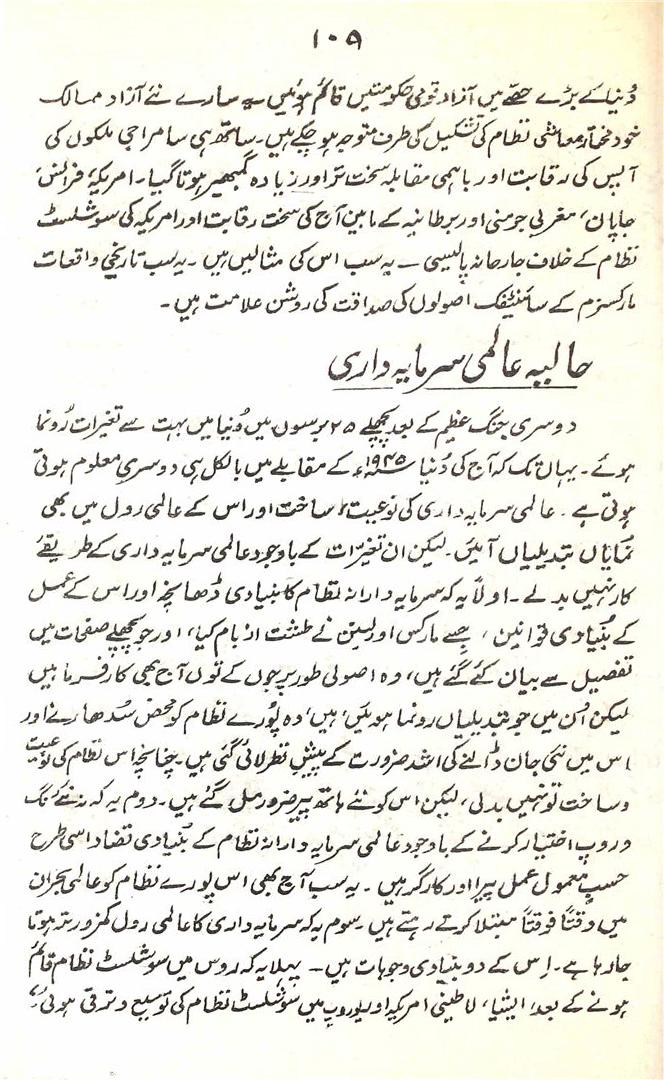 ۱۰۹
دُنیا کے بڑے حصّے میں آزاد قومی حکومتیں قائم ہوئیں۔ یہ سارے نئے آزاد ممالک
خود مختار معاشی نظام کی تشکیل کی طرف متوجہ ہو چکے ہیں۔ ساتھ ہی سامراجی ملکوں کی
آپس کی رقابت اور باہمی مقابلہ سخت تر اور زیادہ گمبھیر ہوتا گیا۔ امریکہ، فرانس،
جاپان، مغربی جرمنی اور برطانیہ کے مابین آج کی سخت رقابت اور امریکہ کی سوشلسٹ
نظام کے خلاف جارحانہ پالیسی — یہ سب اس کی مثالیں ہیں۔ یہ سب تاریخی واقعات
مارکسزم کے سائنٹیفک اصولوں کی صداقت کی روشن علامت ہیں۔
حالیہ عالمی سرمایہ داری
دوسری جنگ عظیم کے بعد پچھلے ۲۵ برسوں میں دُنیا میں بہت سے تغیرات رُونما
ہوئے۔ یہاں تک کہ آج کی دُنیا ۱۹۴۵ء کے مقابلے میں بالکل ہی دوسری معلوم ہوتی
ہوتی ہے۔ عالمی سرمایہ داری کی نوعیت، ساخت اور اس کے عالمی رول میں بھی
نمایاں تبدیلیاں آئیں۔ لیکن ان تغیرات کے باوجود عالمی سرمایہ داری کے طریقے
کار نہیں بدلے۔ اولاً یہ کہ سرمایہ دارانہ نظام کا بنیادی ڈھانچہ اور اس کے عمل
کے بُنیادی قوانین، جسے مارکس اور لینن نے طشت از بام کیا، اور جو پچھلے صفحات میں
تفصیل سے بیان کئے گئے ہیں، وہ اصولی طور پر جوں کے توں آج بھی کارفرما ہیں
لیکن اُن میں جو تبدیلیاں رونما ہوئیں، ہیں، وہ پُورے نظام کو محض سُدھارنے اور
اس میں نئی جان ڈالنے کی اشد ضرورت کے پیشِ نظر لائی گئی ہیں۔ چنانچہ اس نظام کی نوعیت
و ساخت تو نہیں بدلی، لیکن اس کو نئے ہاتھ پیر ضرور مل گئے ہیں۔ دوم یہ کہ نئے رنگ
و روپ اختیار کرنے کے باوجود عالمی سرمایہ دارانہ نظام کے بُنیادی تضاد اسی طرح
حسبِ معمول عمل پیرا اور کارگر ہیں۔ یہ سب آج بھی اس پورے نظام کو عالمی بحران
میں وقتاً فوقتاً مبتلا کرتے رہتے ہیں۔ سوم یہ کہ سرمایہ داری کا عالمی رول کمزور تر ہوتا
جارہا ہے۔ اِس کے دو بنیادی وجوہات ہیں — پہلا یہ کہ روس میں سوشلسٹ نظام قائم
ہونے کے بعد، ایشیا، لاطینی امریکہ اور یوروپ میں سوشلسٹ نظام کی توسیع و ترقی ہوئی،